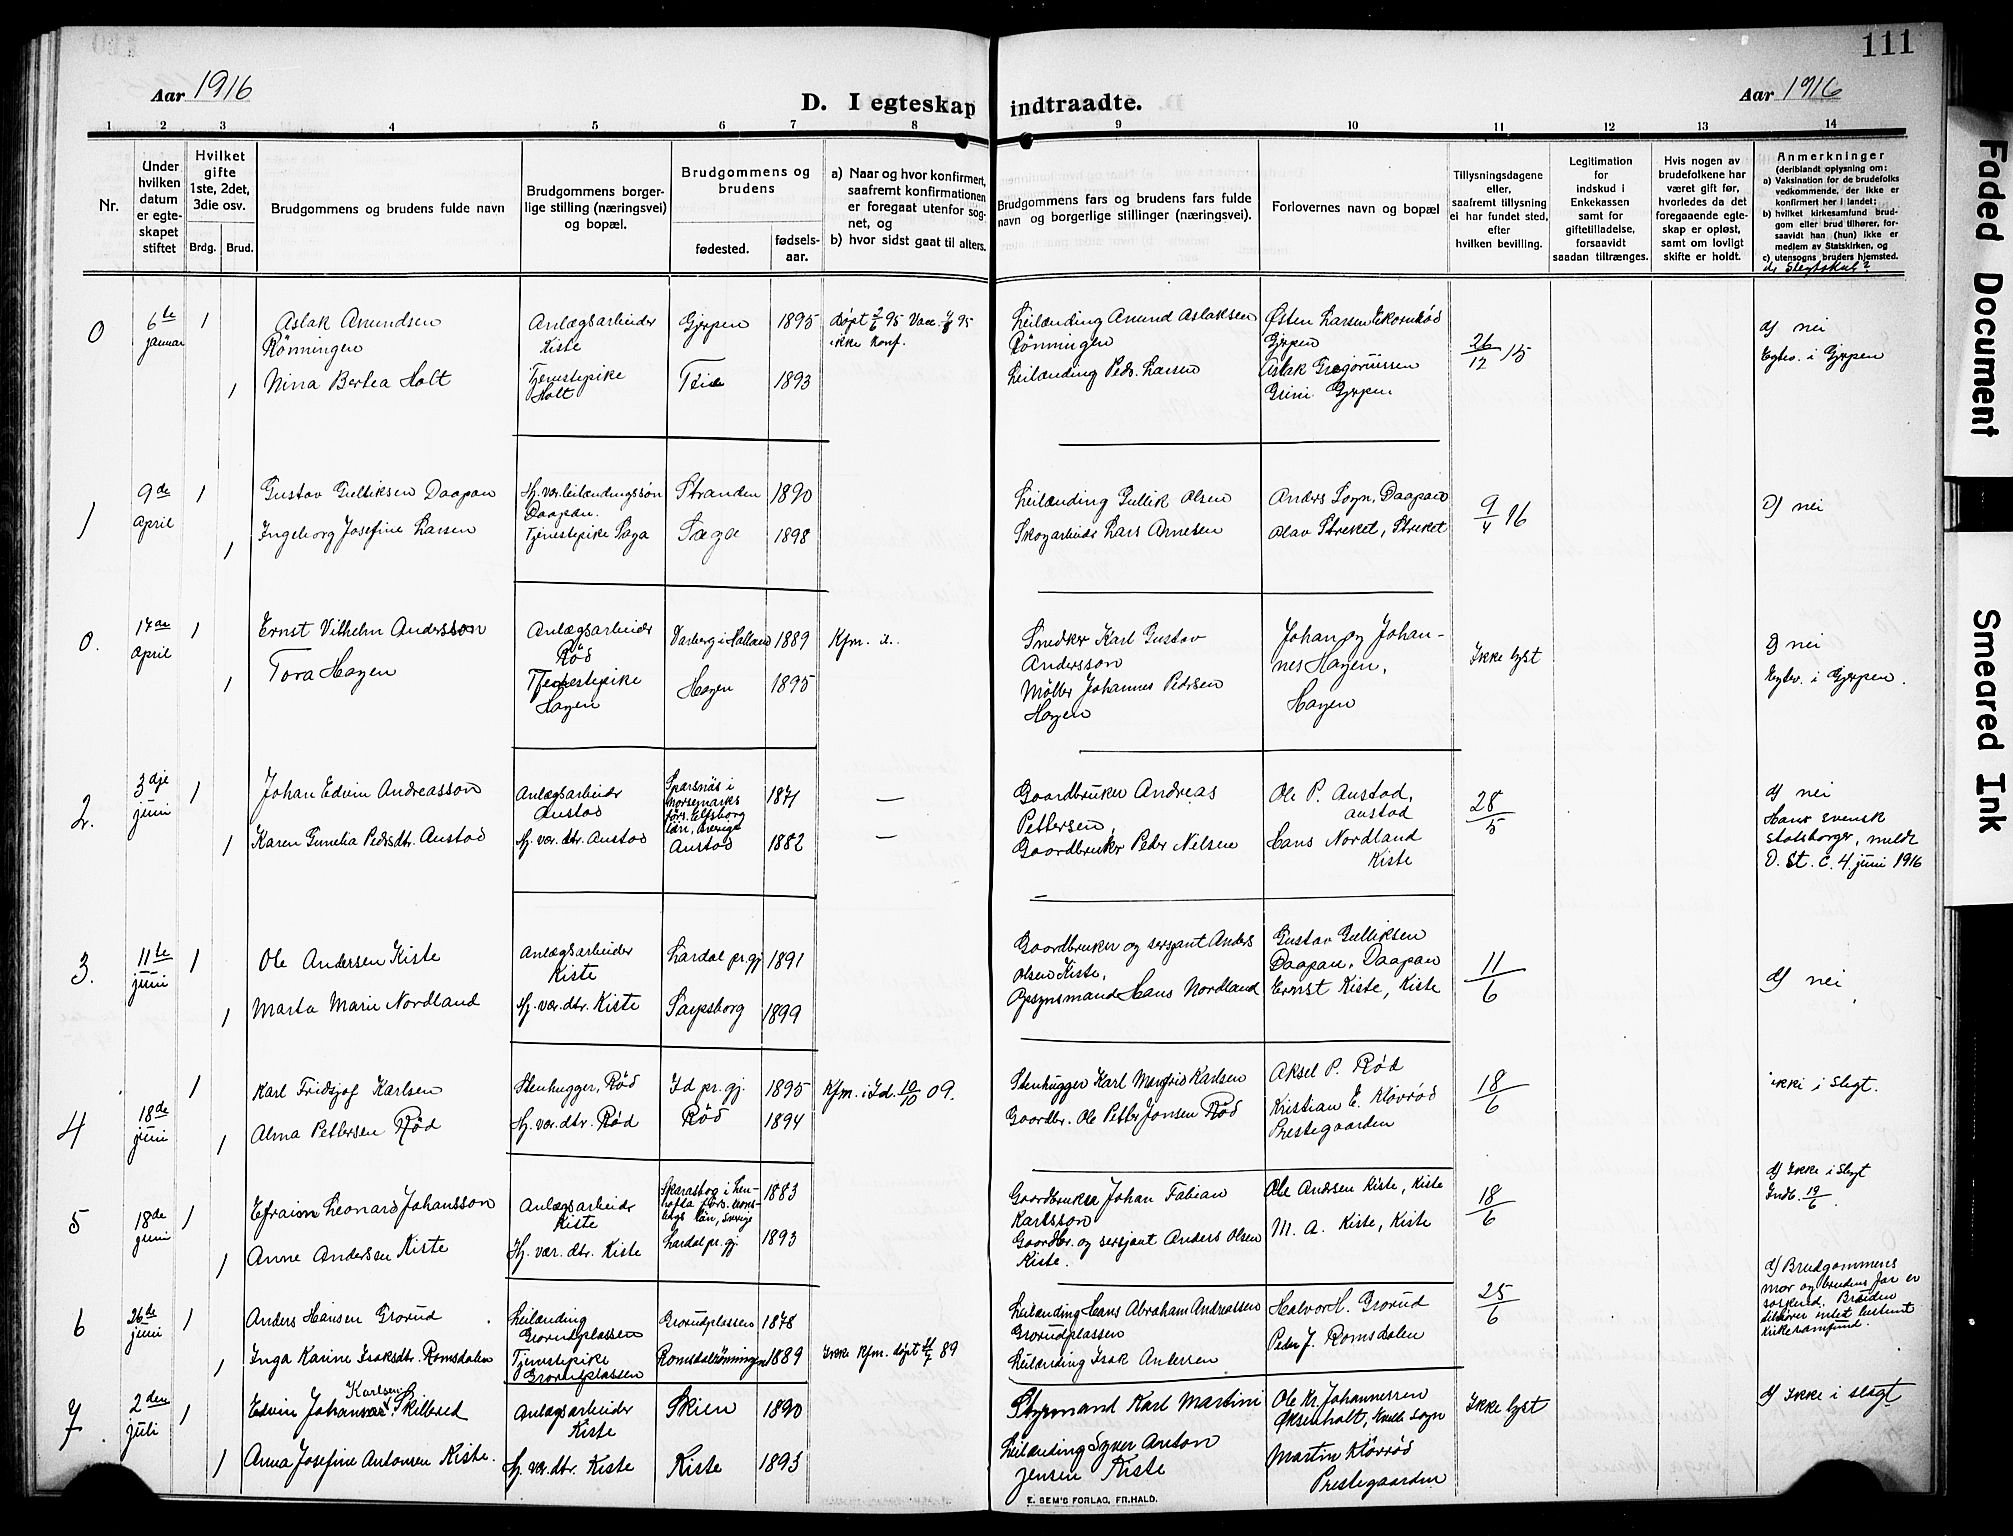 111
Aar 1916
D. I egteskap indtraadte.
Aar 1916
1 2 3 4 5 6 7 8 9 10 11 12 13 14
Nr.
Under
hvilken
datum
er egte-
skapet
stiftet
Hvilket
gifte
1ste, 2det,
3die osv.
Brdg. Brud.
Brudgommens og brudens fulde navn
Brudgommens borger-
lige stilling (næringsvei)
og bopæl.
Brudgommens og
brudens
fødested.
fødsels-
aar.
a) Naar og hvor konfirmert,
saafremt konfirmationen
er foregaat utenfor sog-
net, og
b) hvor sidst gaat til alters.
Brudgommens fars og brudens fars fulde
navn og borgerlige stillinger (næringsvei).
Forlovernes navn og bopæl
Tillysningsdagene
eller,
saafremt tillysning
ei har fundet sted,
efter
hvilken bevilling.
Legitimation
for
indskud i
Enkekassen
samt for
giftetilladelse,
forsaavidt
saadan tiltrænges.
Hvis nogen av
brudefolkene har
været gift før,
hvorledes da det
foregaaende egte-
skap er opløst,
samt om lovligt
skifte er holdt.
Anmerkninger
(deriblandt oplysning om:
a) Vaksination for de brudefolks
vedkommende, der ikke er
konfirmert her i landet;
b) hvilket kirkesamfund brud-
gom eller brud tilhører, for-
saavidt han (hun) ikke er
medlem av Statskirken, og
c) utensogns bruders hjemsted.
d. Slegtskap?
0
6te
januar
1
Aslak Amundsen
Rönningen
Anlægsarbeider
Kiste
Gjerpen
1895
Döpt 2/6 95 Vacc.
ikke Konf.
Leilænding Amund Aslaksen
Rönningen
Østen Larsen Ekornrød
Gjerpen
26/12 15
d) nei
Egtev. i Gjerpen
1
Nina Bertea Holt
Tjenestepike
Holt
1893
Leilænding Peder Larsen
Aslak Gregoriussen
Grini Gjerpen
1
9de
April
1
Gustav Gulliksen Daapan
Hj. vær. leilændingssøn
Daapan.
Stranden
1890
Leilænding Gullik Olsen
Anders Sogn, Daapan
9/4 16
D) nei
1
Ingeborg Josefine Larsen
Tjenestepike Saga
Saga
1898
Skogarbeider Lars Arnesen
Olav Streket, Streket
0.
17de
April
1
Ernst Vilhelm Andersson
Anlægsarbeider
Rød
Varberg i Halland
1889
Kfm. d.
Snedker Karl Gustav
Andersson
Johan og Johan-
nes Hagen,
Hagen
Ikke lyst
D) nei
Egtev. i Gjerpen.
1
Tora Hagen
Tjenestepike
Hagen
Hagen
1895
Møller Johannes Pedersen
Hagen
2.
3dje
juni
1
Johan Edvin Andreasson
Anlægsarbeider
Austad
1871
—
Gaardbruker Andreas
Pettersen,
Ole P. Austad,
Austad
28/5
d) nei
Hans svensk
statsborger, meldt
D. St. C. 4. juni 1916
1
Karen Gunelia Pedersdtr. Austad
Hj. vær. dtr. Austad
Austad
1882
—
Gaardbruker Peder Nilsen
Hans Nordland
Kiste
3.
11te
juni
1
Ole Andersen Kiste
Anlægsarbeider
Kiste
Lardal pr.gj
1891
Gaardbruker og sersjant Anders
Olsen Kiste,
Gustav Gulliksen
Daapan, Daapan
11/6
d) nei
1
Marta Marie Nordland
Hj. vær. dtr. Kiste
Sarpsborg
1899
Opsynsmand Hans Nordland
Ernst Kiste, Kiste
4
18de
juni
1
Karl Fridsjof Karlsen
Stenhugger, Rød
Id pr. gj.
1895
Kfm. i Id. 10/10 09.
Stenhugger Karl Manfrid Karlsen
Aksel P. Rød
18/6
ikke i slegt.
1
Alma Pettersen Rød
Hj. vær. dtr. Rød
Rød
1894
Gaardbr. Ole Petter Jonsen Rød
Kristian E. Kløvrød
Prestegaarden
5
18de
juni
1
Efraim Leonard Johansson
Anlægsarbeider
Kiste
1883
Gaardbruker Johan Fabian
Karlsson
Ole Andersen Kiste, Kiste
18/6
d) Ikke i slegt
Indb. 19/6.
1
Anne Andersen Kiste
Hj. vær. dtr. Kiste
Lardal pr. gj.
1893
Gaardbr. og sersjant Anders Olsen
Kiste.
M. A. Kiste, Kiste
6
26de
juni
1
Anders Hansen Grorud
Leilænding
Grorudplassen
Grorudplassen
1878
Leilænding Hans Abraham Andreassen
Grorudplassen
Halvor H. Grorud
25/6
d) Brudgommens
mor og brudens far er
søskend. Bruden
tilhører intet bestemt
kirkesamfund.
1
Inga Karine Isaksdtr. Romsdalen
Tjenestepike
Grorudplassen
Romsdalrønningen
1889
Ikke Kfm. døpt 21/7 89
Leilænding Isak Andersen
Peder J. Romsdalen
7
2den
juli
1
Karlsen
Edvin Johannes Skilbred
Anlægsarbeider
Kiste
Skien
1890
Styrmand Karl Martini
Ole Kr. Johannessen
Øksenholt, Sogn
Ikke lyst
d) Ikke i slegt
1
Anna Josefine Antonsen Kiste.
Hj. vær. dtr. Kiste
Kiste
1893
Leilænding Syver Anton
Jensen Kiste
Martin Kløvrød
Prestegaarden
E. SEM'S FORLAG, FR.HALD.
Faded Document
Smeared Ink